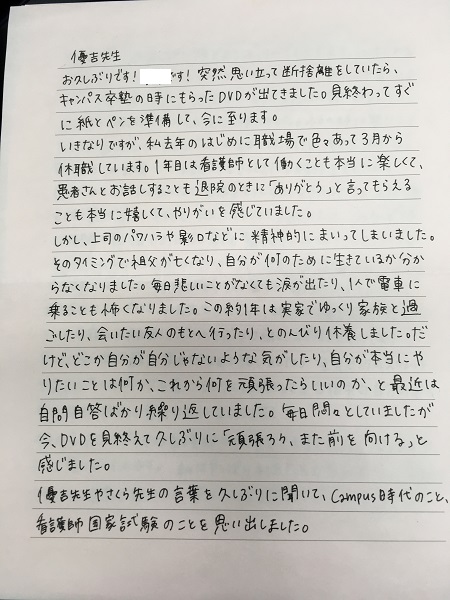 優吉先生
お久しぶりです！ です！突然思い立って断捨離をしていたら、
キャンパス卒塾の時にもらったDVDが出てきました。見終わってすぐ
に紙とペンを準備して、今に至ります。
いきなりですが、私去年のはじめに職場で色々あって3月から
休職しています。1年目は看護師として働くことも本当に楽しくて、
患者さんとお話しすることも退院のときに「ありがとう」と言ってもらえる
ことも本当に嬉しくて、やりがいを感じていました。
しかし、上司のパワハラや影口などに精神的にまいってしまいました。
そのタイミングで祖父が亡くなり、自分が何のために生きているか分か
らなくなりました。毎日悲しいことがなくても涙が出たり、1人で電車に
乗ることも怖くなりました。この約1年は実家でゆっくり家族と過
ごしたり、会いたい友人のもとへ行ったり、とのんびり休養しました。だ
けど、どこか自分が自分じゃないような気がしたり、自分が本当にや
りたいことは何か、これから何を頑張ったらいいのか、と最近は
自問自答ばかり繰り返していました。毎日悶々としていましたが
今、DVDを見終えて久しぶりに「頑張ろう、また前を向ける」と
感じました。
優吉先生やさくら先生の言葉を久しぶりに聞いて、Campus時代のこと、
看護師国家試験のことを思い出しました。